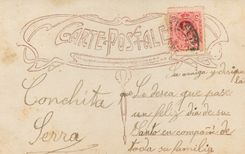 CARTE-POSTALE
su amiga y
Conchita
Serra
Le desea que pase
un feliz dia de su
Santo en compañia de
toda su familia